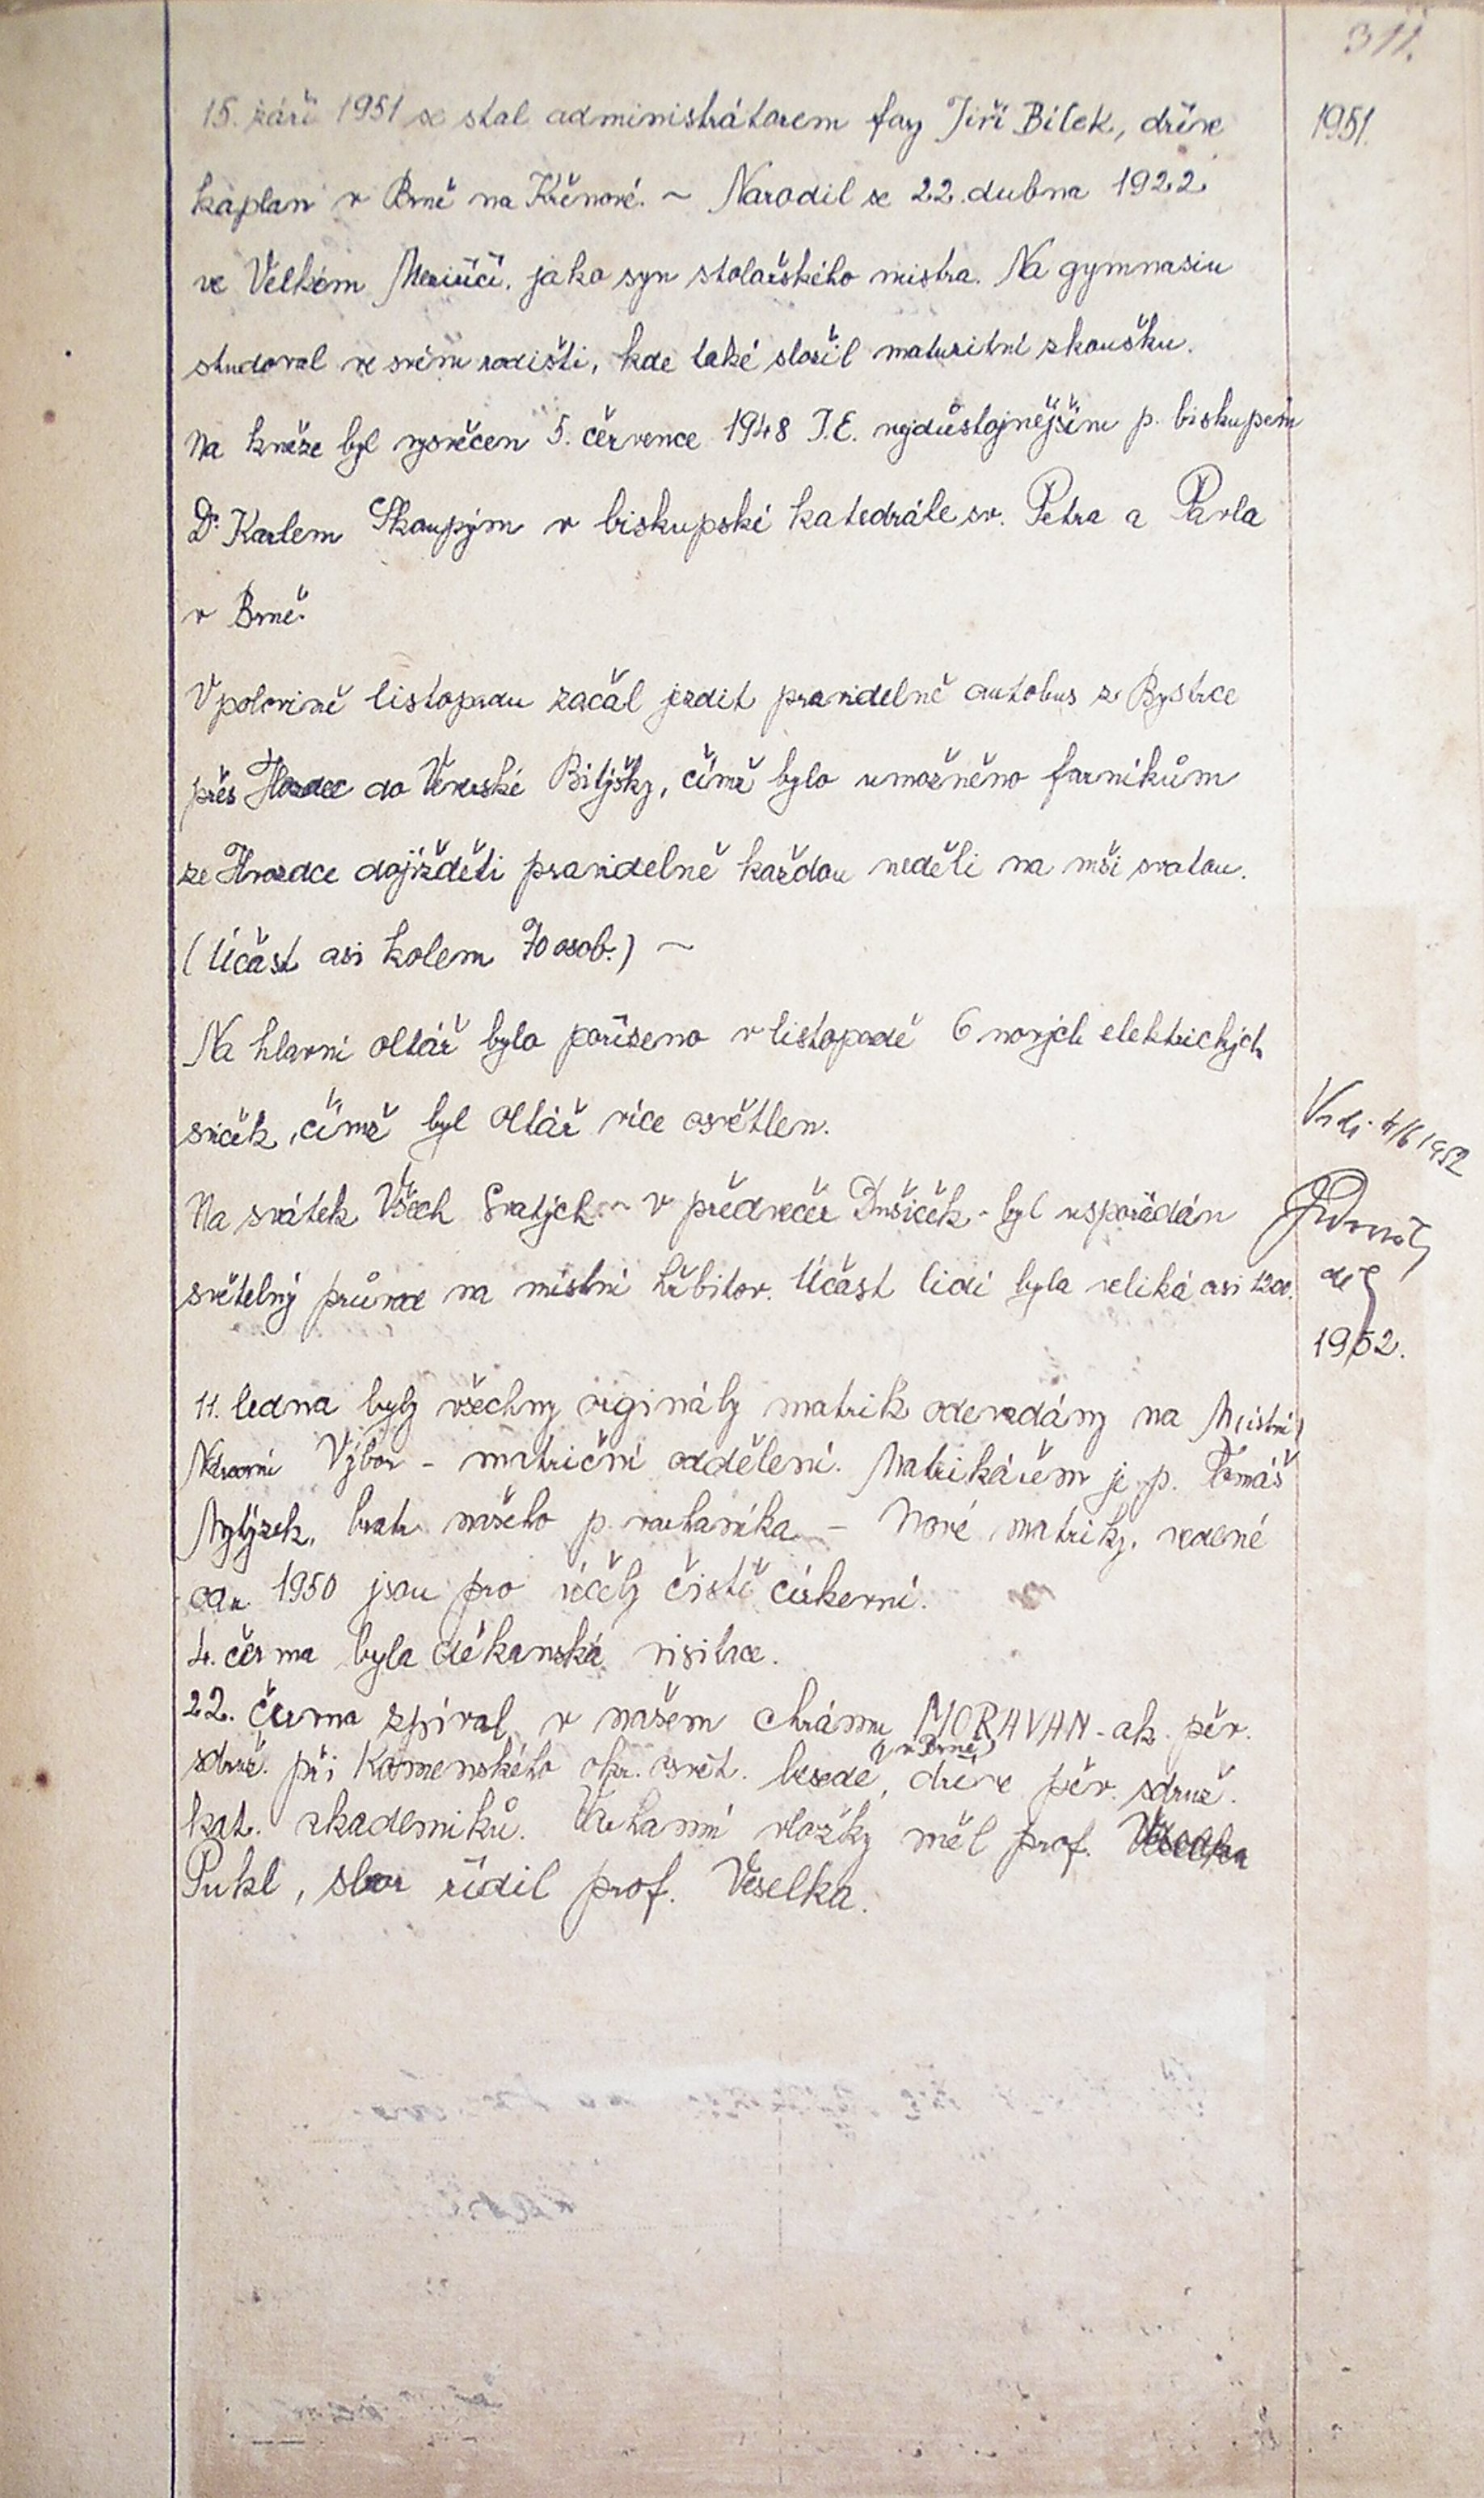 311.
15. září 1951 se stal administrátorem fary Jiří Bílek, dříve
1951.
kaplan v Brně na Křenové. ~ Narodil se 22. dubna 1922
ve Velkém Meziříčí, jako syn stolařského mistra. Na gymnasiu
studoval ve svém rodišti, kde také složil maturitní zkoušku.
Na kněze byl vysvěcen 5. července 1948 J.E. nejdůstojnějším p. biskupem
Dr. Karlem Skoupým v biskupské katedrále sv. Petra a Pavla
v Brně.
V polovině listopadu začal jezdit pravidelně autobus z Bystrce
přes Hvozdec do Veverské Bitýšky, čímž bylo umožněno farníkům
ze Hvozdce dojížděti pravidelně každou neděli na mši svatou.
(Účast asi kolem 70 osob.) ~
Na hlavní oltář bylo pořízeno v listopadě 6 nových elektrických
svíček, čímž byl oltář více osvětlen.
Vidi. 4/6 1952
Na svátek Všech Svatých ~ v předvečer Dušiček - byl uspořádán
světelný průvod na místní hřbitov. Účast lidí byla veliká asi 1200.
děk
1952.
11. ledna byly všechny originály matrik odevzdány na Místní
Národní Výbor - matriční oddělení. Matrikářem je p. Tomáš
bratr našeho p. varhaníka - Nové matriky, vedené
od r. 1950 jsou pro účely čistě církevní.
4. června byla děkanská visitace.
22. června zpíval v našem chrámu MORAVAN - ak. pěv.
sdruž. při Komenského okr. osvět. besedě (v Brně), dříve pěv. sdruž.
kat. akademiků. Varhanní vložky měl prof. Veselka
Pukl, sbor řídil prof. Veselka.